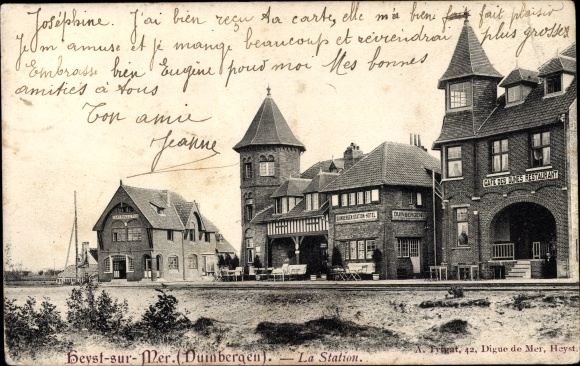 Joséphine. J'ai bien reçu ta carte, elle m'a bien fait plaisir
Je m'amuse et je mange beaucoup et reviendrai plus grosse
Embrasse bien Eugène pour moi Mes bonnes
amitiés à tous
Ton amie
Jeanne
CAFÉ DES DUNES RESTAURANT
DUINBERGEN STATION-HOTEL
DUINBERGEN
Heyst-sur-Mer. (Duinbergen). — La Station.
A. Trygat, 42, Digue de Mer, Heyst.